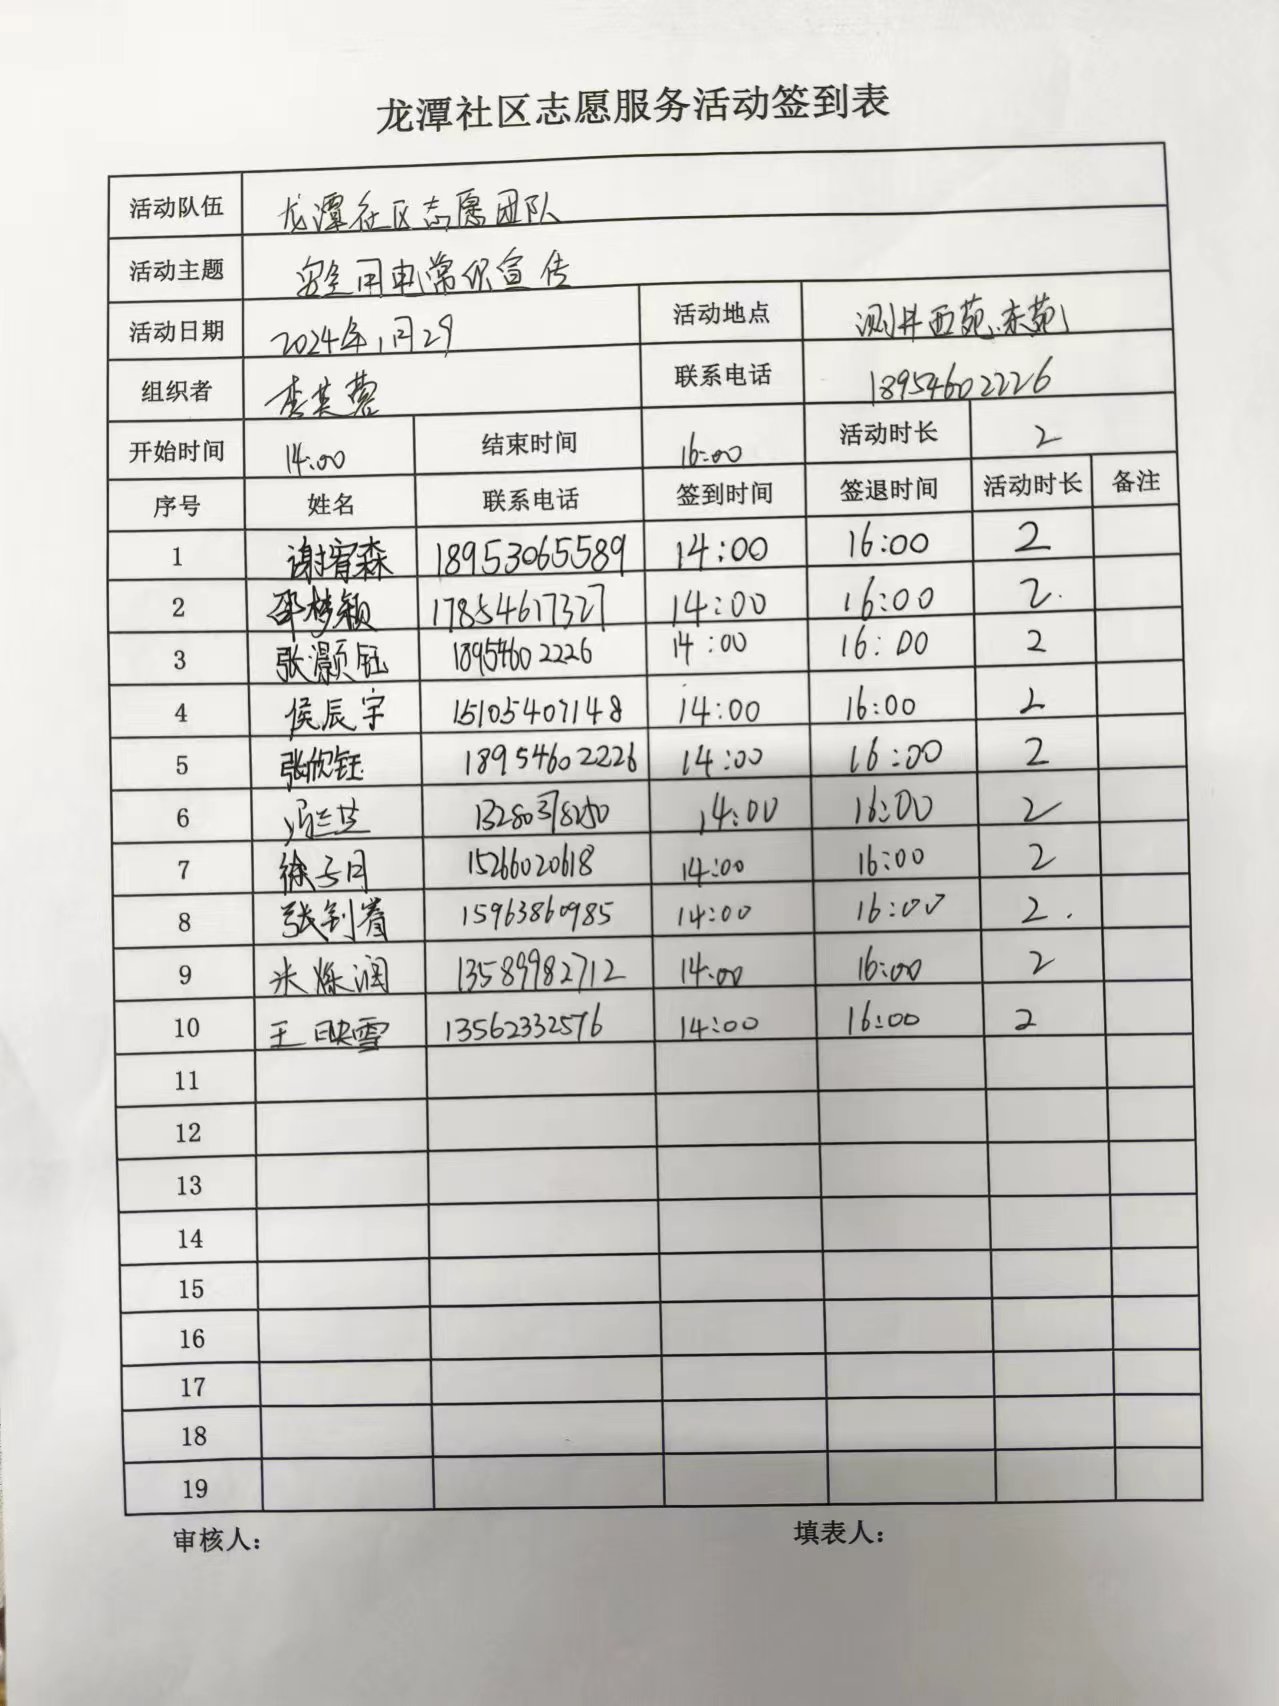 龙潭社区志愿服务活动签到表
活动队伍 龙潭社区志愿团队
活动主题 安全用电常识宣传
活动日期 2024年1月29 活动地点 测井西苑、东苑
组织者 李芙蓉 联系电话 18954602226
开始时间 14:00 结束时间 16:00 活动时长 2
序号 姓名 联系电话 签到时间 签退时间 活动时长 备注
1 谢宥森 18953065589 14:00 16:00 2
2 邵梦颖 17854617327 14:00 16:00 2
3 张灏钰 18954602226 14:00 16:00 2
4 侯辰宇 15105407148 14:00 16:00 2
5 张欣钰 18954602226 14:00 16:00 2
6 冯兰芝 14:00 16:00 2
7 徐子月 15266020618 14:00 16:00 2
8 张 15963860985 14:00 16:00 2
9 13589982712 14:00 16:00 2
10 王映雪 13562332576 14:00 16:00 2
11
12
13
14
15
16
17
18
19
审核人： 填表人：